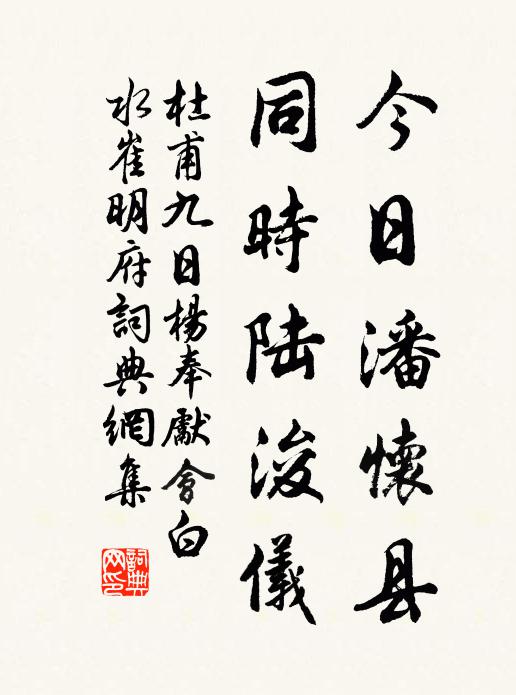 今日潘懷县
同時陆浚儀
杜甫九日楊奉獻會白
水崔明府詞典網集
詞典
网印